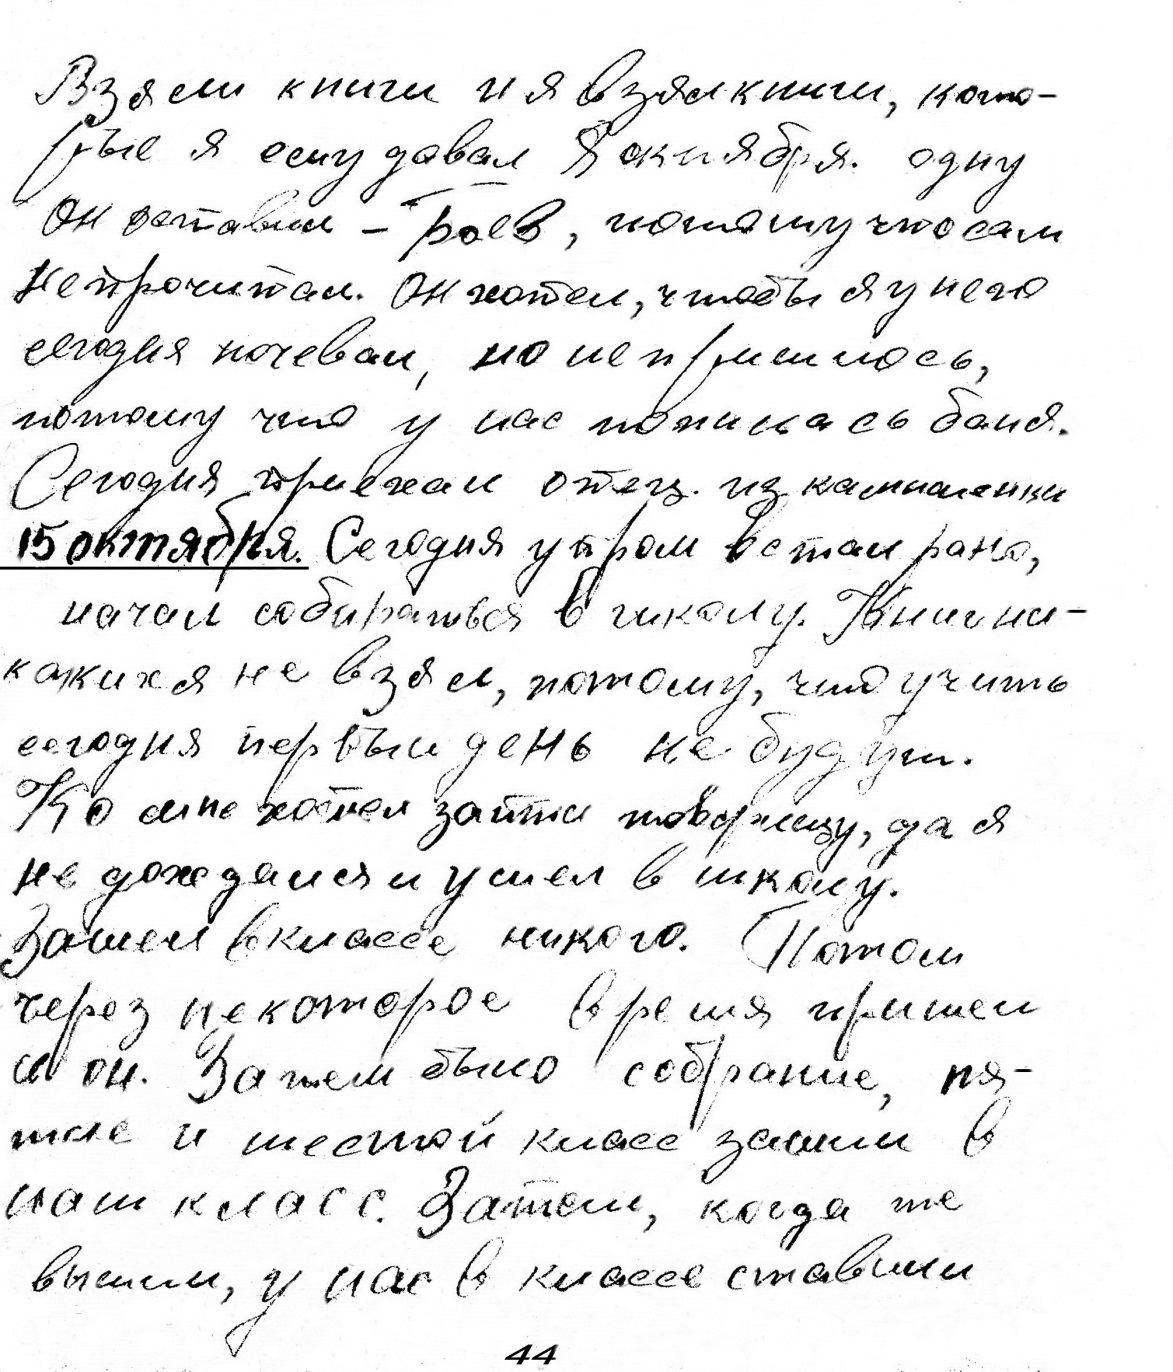 Взяли книги и я взял книги, кото-
рые я ему давал 8 октября. одну
он оставил – Боев, потому что сам
не прочитал. Он хотел, чтобы я у него
сегодня ночевал, но не пришлось,
потому что у нас топилась баня.
Сегодня приехал отец. из
15 октября. Сегодня утром встал рано,
начал собираться в школу. Книг ни-
каких я не взял, потому, что учить
сегодня первый день не будут.
Ко мне хотел зайти да я
не дождался и ушел в школу.
Зашел в классе никого. Потом
через некоторое время пришел
и он. Затем было собрание, пя-
тые и шестой класс зашли в
наш класс. Затем, когда те
вышли, у нас в классе ставили
44